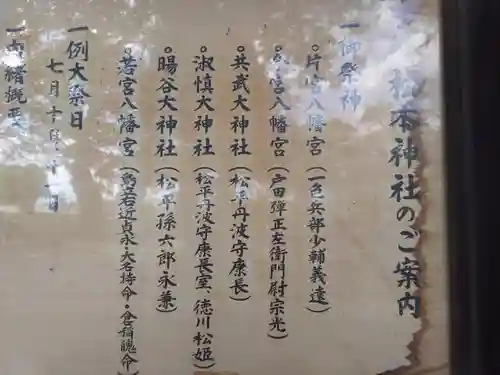 松本神社のご案内
一御祭神
○片宮八幡宮(一色兵部少輔義遠)
宮八幡宮(戸田弾正左衛門尉宗光)
○共武大神社(松平丹波守康長)
○淑慎大神社(松平丹波守康長室、徳川松姫)
○暘谷大神社(松平孫六郎永兼)
○若宮八幡宮(嶋立右近貞永・大名持命・倉稲魂命)
一例大祭日
七月
一由緒概要